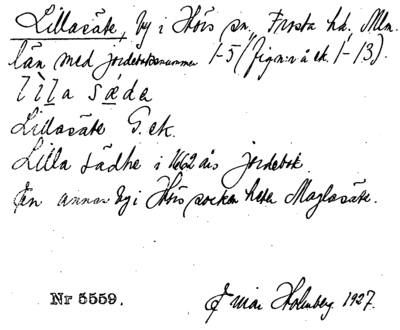 Lillasäte, by i Hörs sn. Frosta hd. Mlm.
län med jordeboksnummer 1-5 (fig. n:r å ek. 1-13).
lìl̄a sǽda
Lillasäte G. ek.
Lilla sädhe i 1662 års jordebok
En annan by i Hörs socken heter Maglasäte.
Nr 5559. Einar Holmberg 1927.